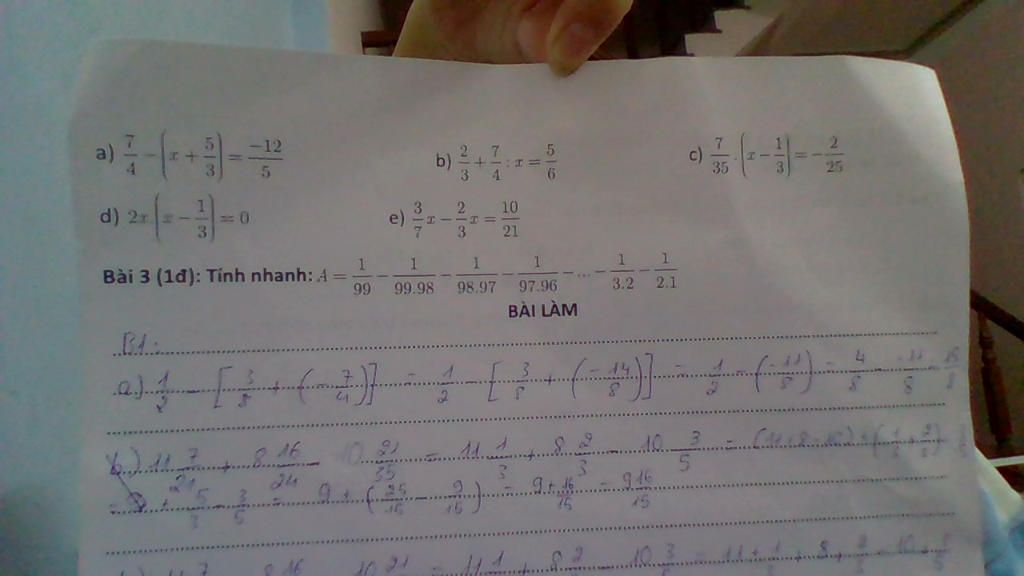 a) 7/4 − (x + 5/3) = −12/5    b) 2/3 + 7/4 : x = 5/6    c) 7/35 . (x − 1/3) = −2/25
d) 2x.(x − 1/3) = 0    e) 3/7 x − 2/3 x = 10/21
Bài 3 (1đ): Tính nhanh: A = 1/99 − 1/99.98 − 1/98.97 − 1/97.96 − ... − 1/3.2 − 1/2.1
BÀI LÀM
B1:
a.) 1/2 − [3/8 + (−7/4)] = 1/2 − [3/8 + (−14/8)] = 1/2 − (−11/8) = 4/8 − −11/8 = 15/8
b.) 11 7/21 + 8 16/24 10 21/35 = 11 1/3 + 8 2/3 − 10 3/5 =
= + 5/3 − 3/5 = 9 + (25/15 − 9/15) = 9 + 16/15 = 9 16/15
11 7 8 16 10 21 = 11 1 + 8 2 − 10 3 =